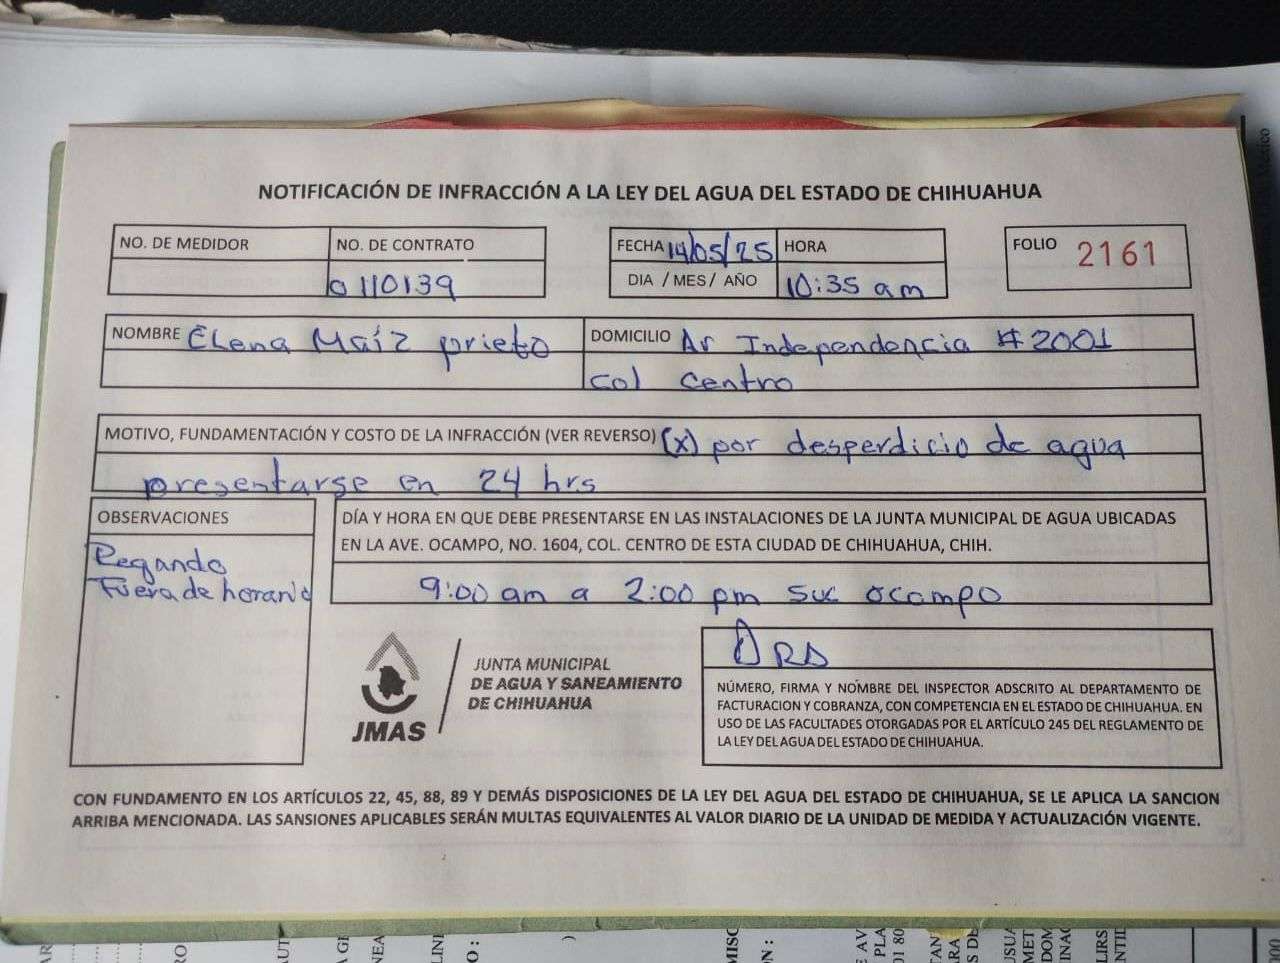 NOTIFICACIÓN DE INFRACCIÓN A LA LEY DEL AGUA DEL ESTADO DE CHIHUAHUA
NO. DE MEDIDOR
NO. DE CONTRATO
0110139
FECHA 14/05/25
DIA / MES/ AÑO
HORA
10:35 am
FOLIO 2161
NOMBRE Elena Maíz prieto
DOMICILIO Av Independencia #2001
col centro
MOTIVO, FUNDAMENTACIÓN Y COSTO DE LA INFRACCIÓN (VER REVERSO) (x) por desperdicio de agua
presentarse en 24 hrs
OBSERVACIONES
Regando
Fuera de horario
DÍA Y HORA EN QUE DEBE PRESENTARSE EN LAS INSTALACIONES DE LA JUNTA MUNICIPAL DE AGUA UBICADAS
EN LA AVE. OCAMPO, NO. 1604, COL. CENTRO DE ESTA CIUDAD DE CHIHUAHUA, CHIH.
9:00 am a 2:00 pm suc ocampo
JMAS
JUNTA MUNICIPAL
DE AGUA Y SANEAMIENTO
DE CHIHUAHUA
NÚMERO, FIRMA Y NOMBRE DEL INSPECTOR ADSCRITO AL DEPARTAMENTO DE
FACTURACION Y COBRANZA, CON COMPETENCIA EN EL ESTADO DE CHIHUAHUA. EN
USO DE LAS FACULTADES OTORGADAS POR EL ARTÍCULO 245 DEL REGLAMENTO DE
LA LEY DEL AGUA DEL ESTADO DE CHIHUAHUA.
CON FUNDAMENTO EN LOS ARTÍCULOS 22, 45, 88, 89 Y DEMÁS DISPOSICIONES DE LA LEY DEL AGUA DEL ESTADO DE CHIHUAHUA, SE LE APLICA LA SANCION
ARRIBA MENCIONADA. LAS SANSIONES APLICABLES SERÁN MULTAS EQUIVALENTES AL VALOR DIARIO DE LA UNIDAD DE MEDIDA Y ACTUALIZACIÓN VIGENTE.